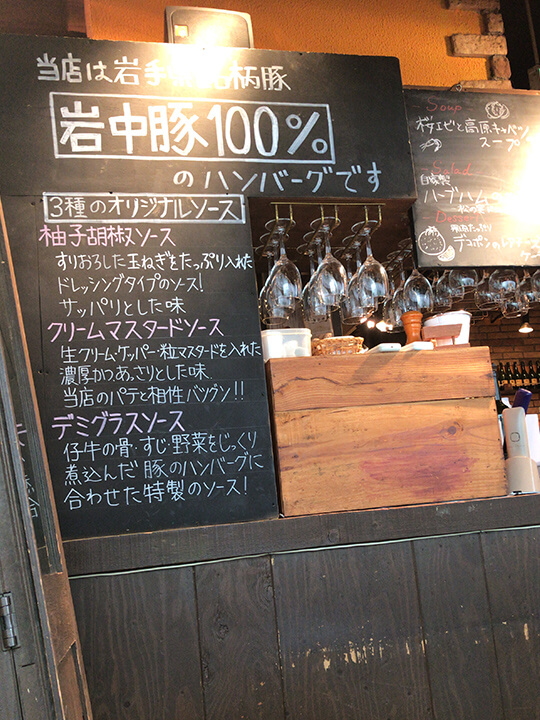 当店は岩手 銘柄豚
岩中豚100%
のハンバーグです
3種のオリジナルソース
柚子胡椒ソース
すりおろした玉ねぎをたっぷり入れた
ドレッシングタイプのソース!
サッパリとした味
クリームマスタードソース
生クリーム・ケッパー・粒マスタードを入れた
濃厚かつあっさりとした味
当店のパテと相性バツグン!!
デミグラスソース
仔牛の骨・すじ・野菜をじっくり
煮込んだ豚のハンバーグに
合わせた特製のソース!
Soup
桜エビと高原キャベツ
スープ
Salad
自家製
ハーブハムの
デコポンの